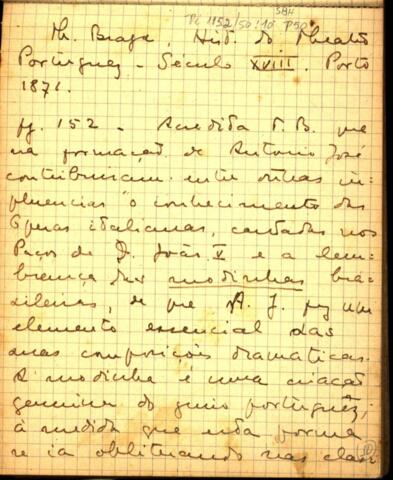 SBH
Pi 1152/50 10 P50
Th. Braga, Hist. do Theatro
Portuguez - Século XVIII. Porto
1871.
pg. 152 - Acredita T. B. que
na formação de Antonio José
contribuiram entre outras in-
fluencias "o conhecimento das
Operas italianas, cantadas nos
Paços de D. João V e a lem-
brança das modinhas bra-
sileiras, de que A. J. fez um
elemento essencial das
suas composições dramaticas.
A modinha é uma criação
genuina do genio portuguêz;
à medida que esta forma
se ia obliterando nas clas-